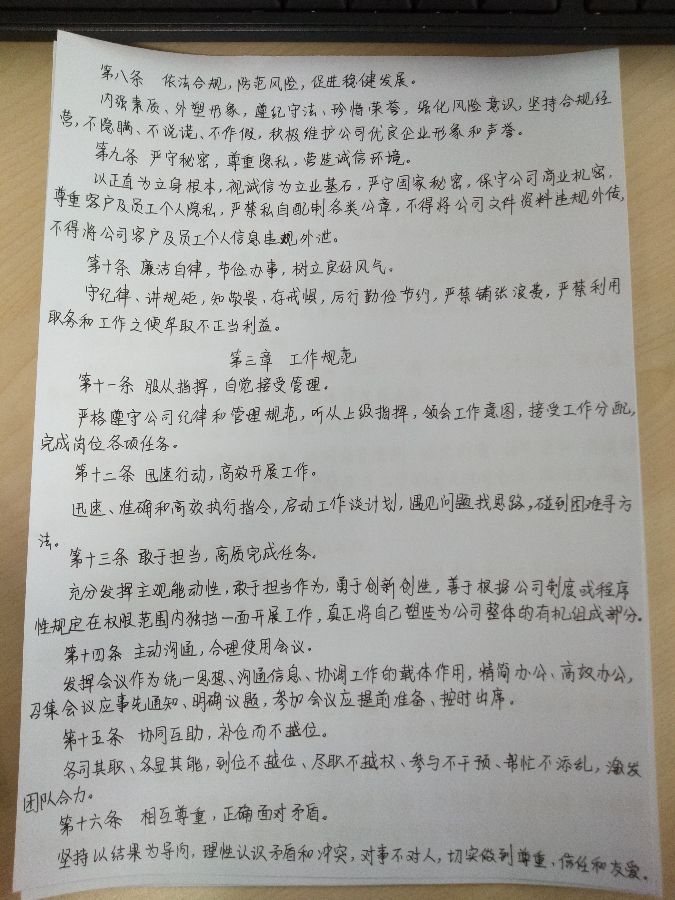 第八条 依法合规，防范风险，促进稳健发展。
内强素质、外塑形象，遵纪守法、珍惜荣誉，强化风险意识，坚持合规经
营，不隐瞒、不说谎、不作假，积极维护公司优良企业形象和声誉。
第九条 严守秘密，尊重隐私，营造诚信环境。
以正直为立身根本，视诚信为立业基石，严守国家秘密，保守公司商业机密，
尊重客户及员工个人隐私，严禁私自配制各类公章，不得将公司文件资料违规外传，
不得将公司客户及员工个人信息违规外泄。
第十条 廉洁自律，节俭办事，树立良好风气。
守纪律、讲规矩，知敬畏、存戒惧，厉行勤俭节约，严禁铺张浪费，严禁利用
职务和工作之便牟取不正当利益。
第三章 工作规范
第十一条 服从指挥，自觉接受管理。
严格遵守公司纪律和管理规范，听从上级指挥，领会工作意图，接受工作分配，
完成岗位各项任务。
第十二条 迅速行动，高效开展工作。
迅速、准确和高效执行指令，启动工作谈计划，遇见问题找思路，碰到困难寻方
法。
第十三条 敢于担当，高质完成任务。
充分发挥主观能动性，敢于担当作为，勇于创新创造，善于根据公司制度或程序
性规定在权限范围内独挡一面开展工作，真正将自己塑造为公司整体的有机组成部分。
第十四条 主动沟通，合理使用会议。
发挥会议作为统一思想、沟通信息、协调工作的载体作用，精简办公、高效办公，
召集会议应事先通知、明确议题，参加会议应提前准备、按时出席。
第十五条 协同互助，补位而不越位。
各司其职、各显其能，到位不越位、尽职不越权、参与不干预、帮忙不添乱，激发
团队合力。
第十六条 相互尊重，正确面对矛盾。
坚持以结果为导向，理性认识矛盾和冲突，对事不对人，切实做到尊重、信任和友爱。